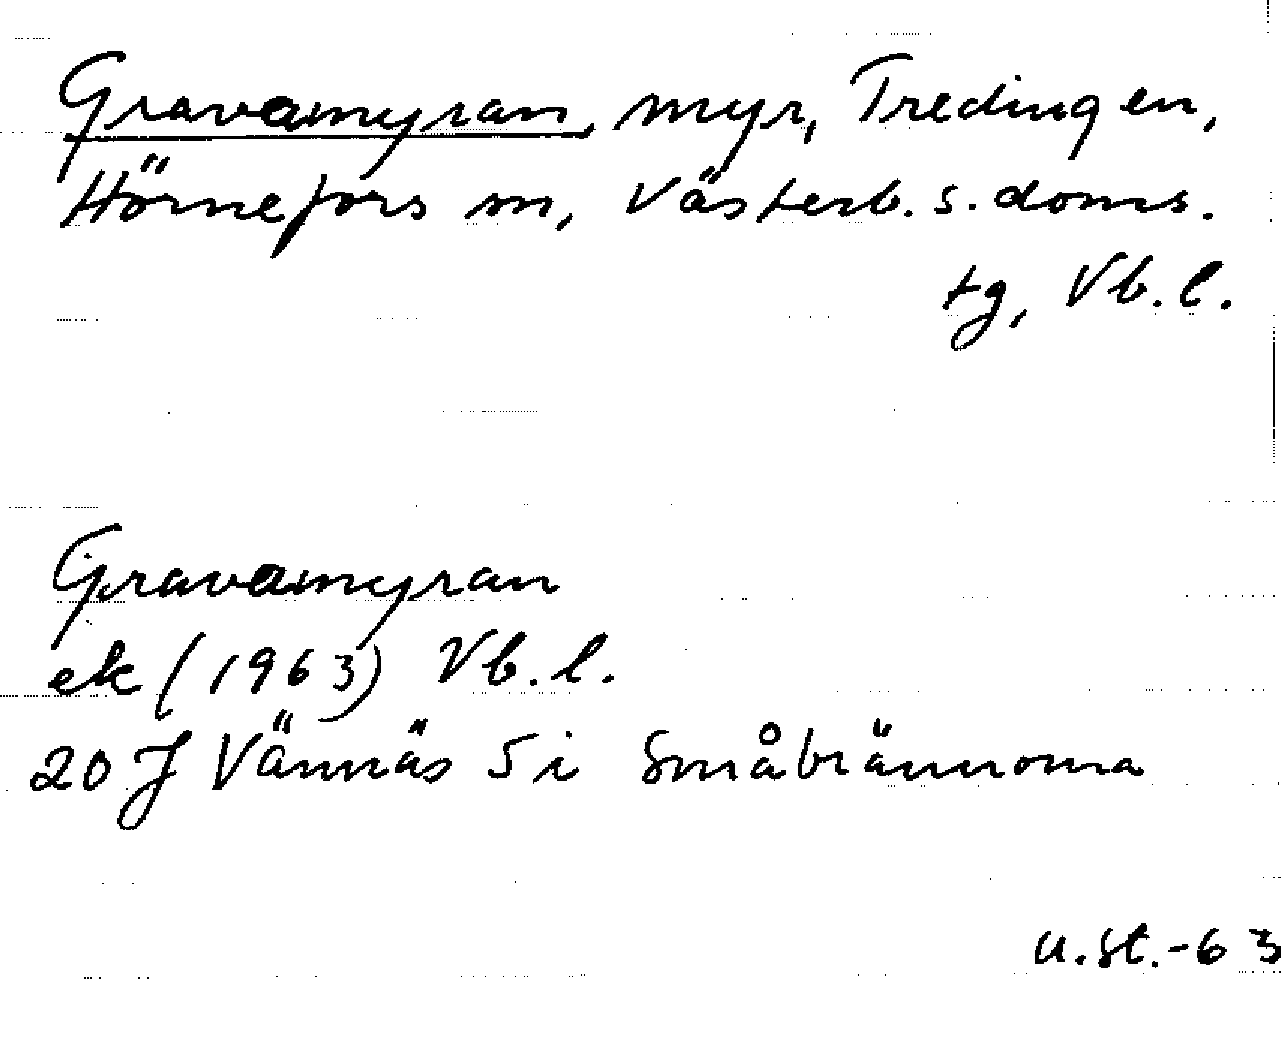 Gravamyran, myr, Tredingen,
Hörnefors sn, Västerb. s. doms.
tg, Vb. l.
Gravamyran
ek (1963) Vb. l.
20 J Vännäs 5 i Småbrännorna
u.st.-63